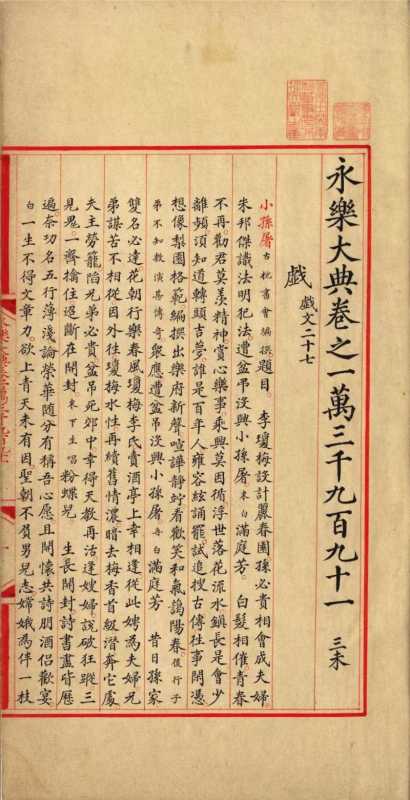 永樂大典卷之一萬三千九百九十一 三未
戲 戲文二十七
小孫屠 古杭書會編撰 題目。 李瓊梅設計麗春園孫必貴相會成夫婦。
朱邦傑識法明犯法遭盆吊没興小孫屠 末白 滿庭芳。 白髮相催。青春
不再。勸君莫羨精神。賞心樂事。乘興莫因循。浮世落花流水鎮長是會少
離頻須知道轉頭吉夢。誰是百年人雍容絃誦罷。試追搜古傳往事閒憑
想像梨園格範編撰出樂府新聲。喧譁靜竚看歡笑和氣藹陽春。後行子
弟不知敷演甚傳奇 衆應遭盆吊没興小孫屠 再白 滿庭芳 昔日孫家
雙名必達。花朝行樂春風瓊梅李氏賣酒亭上幸相逢從此娉為夫婦兄
弟謀苦不相從因外往瓊梅水性再續舊情濃。暗去梅香首級潛奔它處
夫主勞籠陷兄弟必貴盆吊死郊中幸得天教再活逢嫂婦。說破狂蹤三
見鬼一齊擒住迢斷在開封。末下生唱 粉蝶兒 生長開封詩書盡皆歷
遍。奈功名五行薄淺論榮華隨分有稱吾心愿且開懷共詩朋酒侶歡宴
白一生不得文章力。欲上青天未有因。聖朝不負男兒志嫦娥為伴一枝